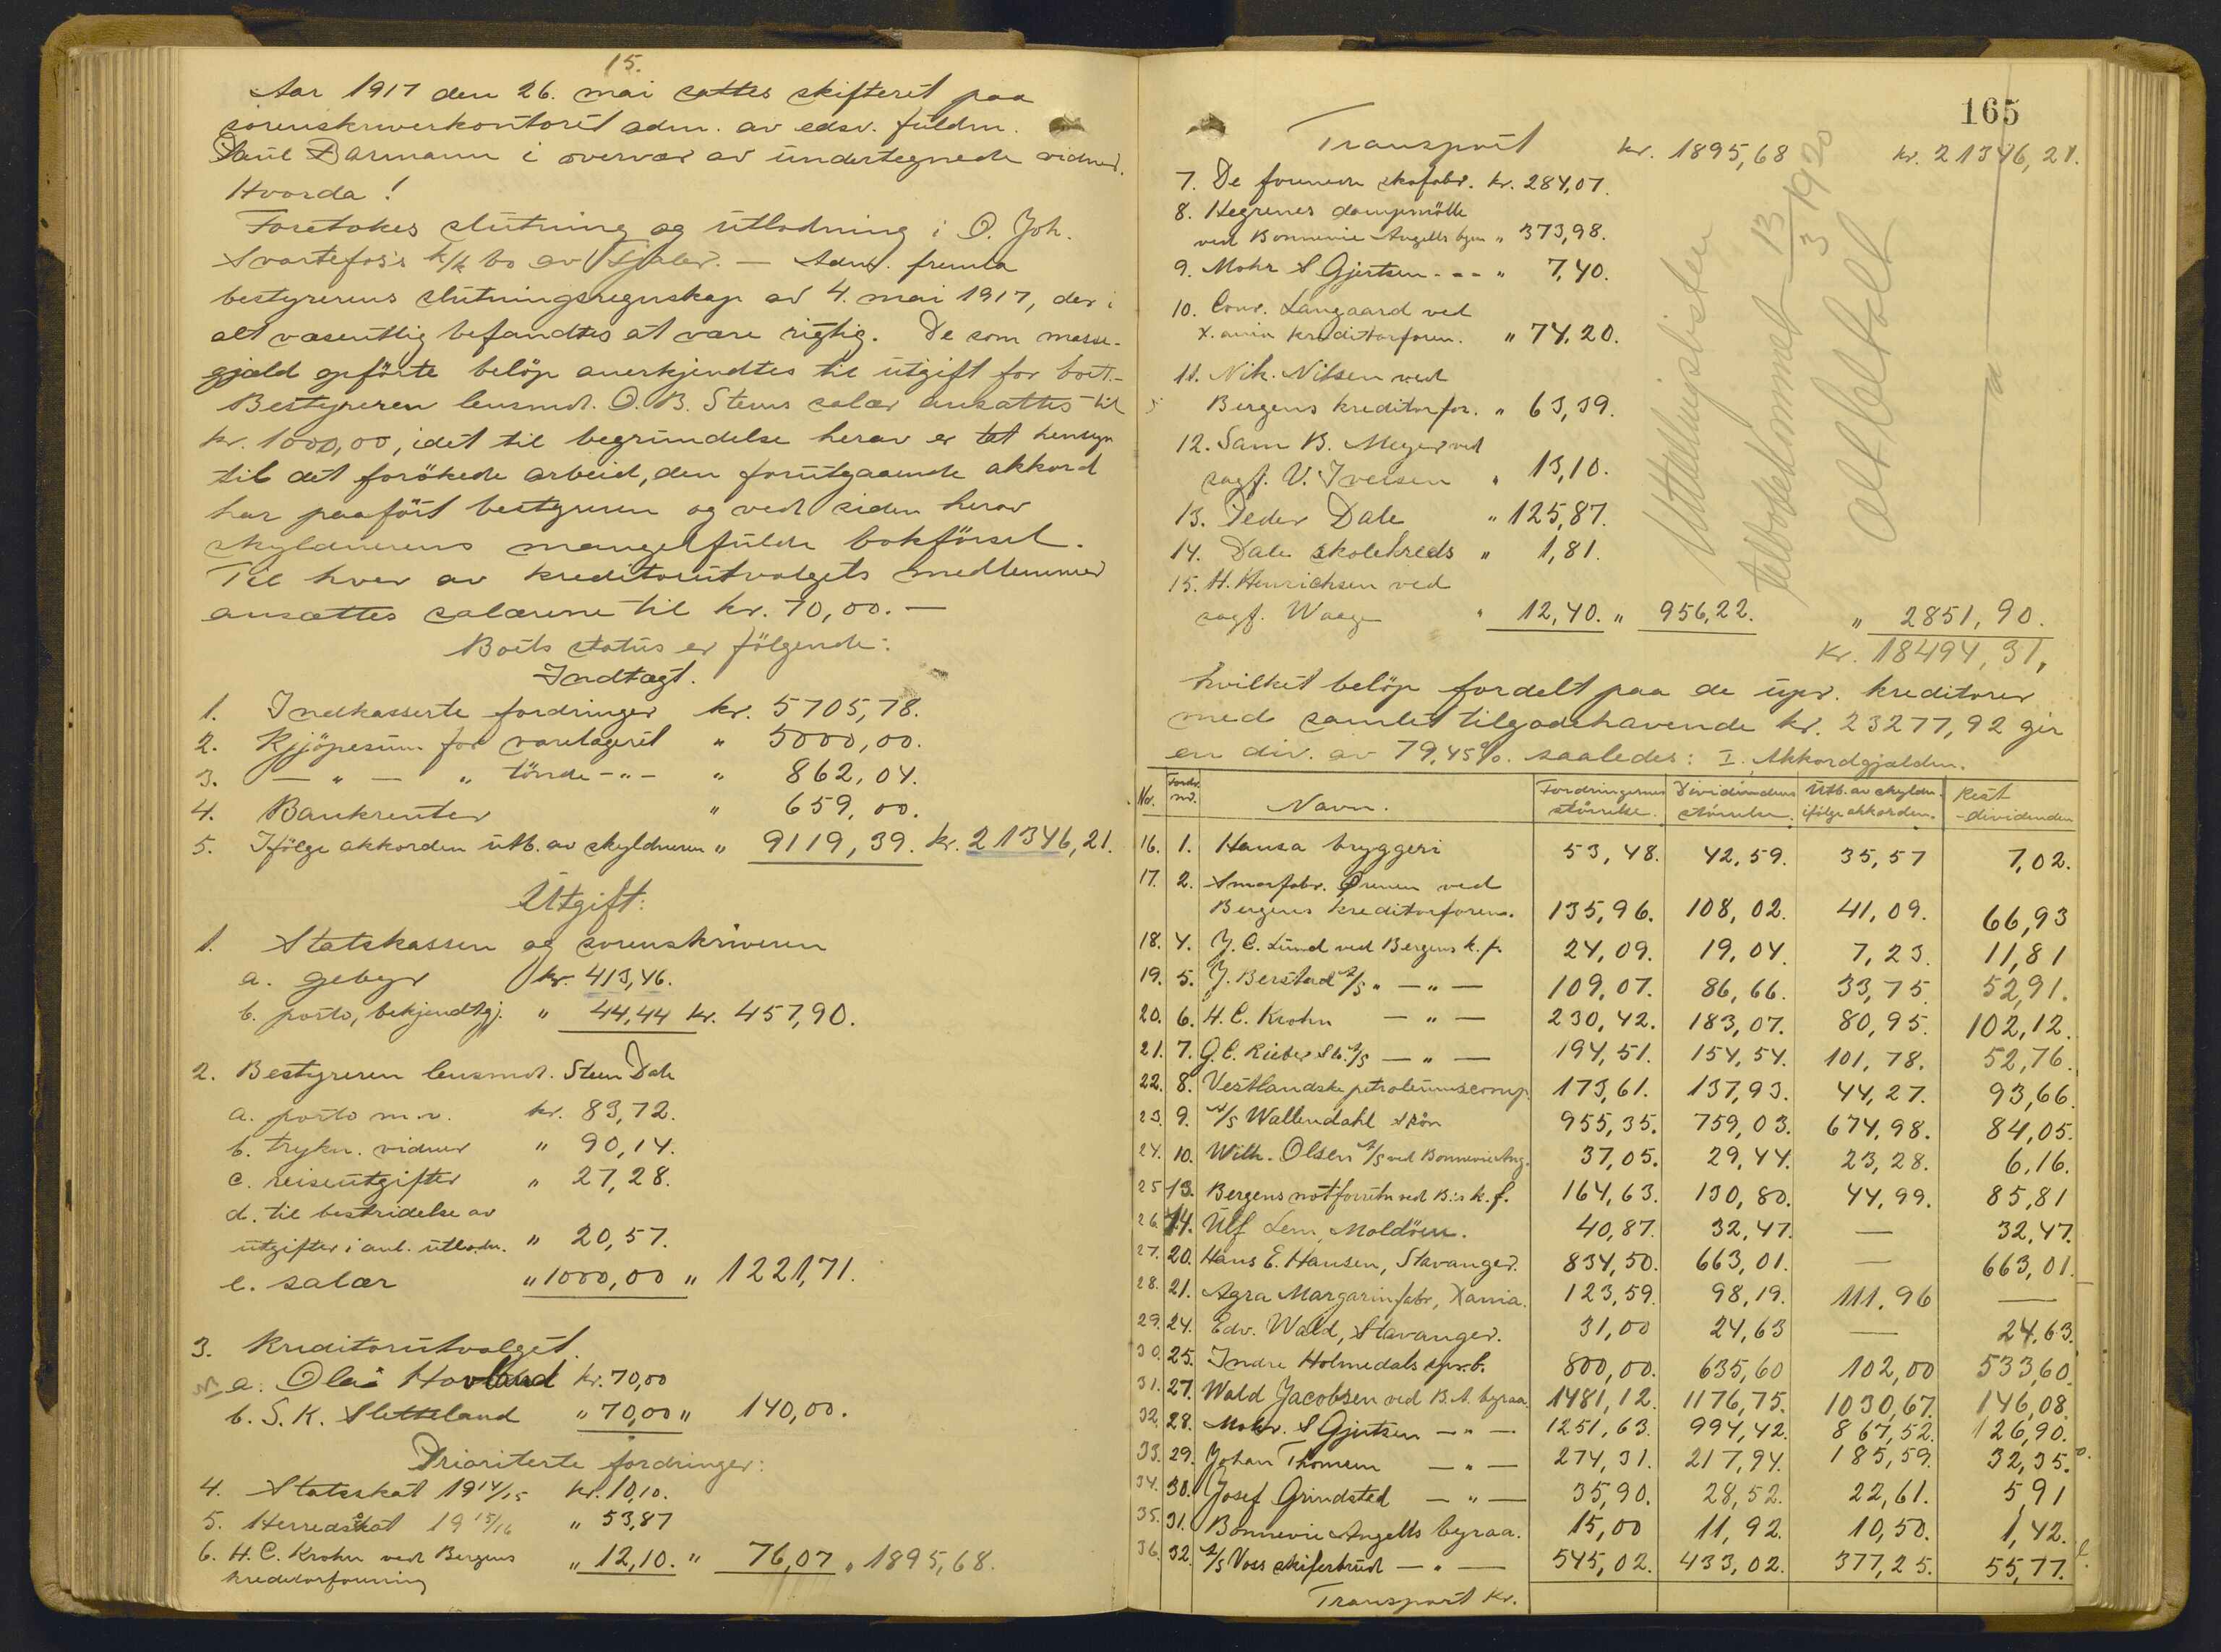 15.
Aar 1917 den 26. mai sattes skifteret paa
sorenskriverkontoret adm. av edsv. fuldm.
Paul Darmann i overvær av undertegnede vidner.
Hvorda!
Foretokes slutning og utlodning i O. Joh.
Svartefos's k/k bo av Fjaler. — Adm. fremla
bestyrerens slutningsregnskap av 4. mai 1917, der i
alt væsentlig befandtes at være rigtig. De som masse-
gjæld opförte belöp anerkjendtes til utgift for boet.-
Bestyreren lensmd. O. B. Steens salær ansattes til
kr. 1000,00, idet til begrundelse herav er tat hensyn
til det forökede arbeid, den forutgaaende akkord
har paafört bestyreren og ved siden herav
skyldnerens mangelfulde bokförsel.
Til hver av kreditorutvalgets medlemmer
ansættes salærene til kr. 70,00. —
Boets status er fölgende:
Indtægt.
1. Indkasserte fordringer kr. 5705,78.
2. Kjöpesum for varelageret " 5000,00.
3. — " — " tönde -"- " 862,04.
4. Bankrenter " 659,00.
5. Ifölge akkorden utb. av skyldneren " 9119,39. kr. 21346,21.
Utgift:
1. Statskassen og sorenskriveren
a. gebyr kr. 413,46.
b. porto, bekjendtgj. " 44,44 kr. 457,90.
2. Bestyreren lensmd. Steen Dale
a. porto m.v. kr. 83,72.
b. trykn. vidner " 90,14.
c. reiseutgifter " 27,28.
d. til bestridelse av
utgifter i anl. utlodn. " 20,57.
e. salær " 1000,00 " 1221,71.
3. Kreditorutvalget.
a. Olai Hovland kr. 70,00
b. S. K. Sletteland " 70,00 " 140,00.
Prioriterte fordringer:
4. Statsskat 1914/15 kr. 10,10.
5. Herredsskat 1915/16 " 53,87
6. H. C. Krohn ved Bergens " 12,10. " 76,07 " 1895,68.
kreditorforening
165
Transport kr. 1895,68 kr. 21346,21.
7. De forenede skofabr. kr. 284,07.
8. Hegrenes dampmölle
ved Bonnevie Angells byraa " 373,98.
9. Mohr & Gjertsen - - - " 7,40.
10. Conr. Langaard ved
X.ania kreditorforen. " 74,20.
11. Nik. Nilsen ved
Bergens kreditorfor. " 63,39.
12. Sam B. Meyer ved
sagf. V. Iversen " 13,10.
13. Peder Dale " 125,87.
14. Dale skolekreds " 1,81.
15. H. Henrichsen ved
sagf. Waage " 12,40. " 956,22. " 2851,90.
Kr. 18494,31,
Utdelingslisten
tilbakekommet 13/3 1920
alt betalt
hvilket belöp fordelt paa de upr. kreditorer
med samlet tilgodehavende kr. 23277,92 gir
en div. av 79,45%. saaledes: I. Akkordgjælden.
Nr. Fordr. nr. Navn. Fordringernes störrelse. Dividendens störrelse. Utb. av skyldn. ifölge akkorden. Rest-dividenden
16. 1. Hansa bryggeri 53,48. 42,59. 35,57 7,02.
17. 2. Smørfabr. Ørnen ved
Bergens kreditorforen. 135,96. 108,02. 41,09. 66,93
18. 4. J. C. Lund ved Bergens k.f. 24,09. 19,04. 7,23. 11,81
19. 5. J. Berstad A/S " — " — 109,07. 86,66. 33,75 52,91.
20. 6. H. C. Krohn — " — 230,42. 183,07. 80,95. 102,12.
21. 7. G. C. Rieber & S. A/S — " — 194,51. 154,54. 101,78. 52,76.
22. 8. Vestlandske petroleumscomp. 173,61. 137,93. 44,27. 93,66.
23. 9. A/S Wallendahl & sön 955,35. 759,03. 674,98. 84,05.
24. 10. Wilh. Olsen A/S ved Bonnevie Ang. 37,05. 29,44. 23,28. 6,16.
25 13. Bergens notforretn ved B:s k.f. 164,63. 130,80. 44,99. 85,81
26. 14. Ulf Lem, Moldöen. 40,87. 32,47. — 32,47.
27. 20. Hans E. Hansen, Stavanger. 834,50. 663,01. — 663,01.
28. 21. Agra Margarinfabr, Xania. 123,59. 98,19. 111,96 —
29. 24. Edv. Wald, Stavanger. 31,00 24,63 — 24,63.
30. 25. Indre Holmedals spr.b. 800,00. 635,60 102,00 533,60
31. 27. Wald Jacobsen ved B. A. byraa. 1481,12. 1176,75. 1030,67. 146,08.
32. 28. Mohr & Gjertsen — " — 1251,63. 994,42. 867,52. 126,90.
33. 29. Johan Thomsen — " — 274,31. 217,94. 185,59. 32,35.
34. 30. Josef Grindsted — " — 35,90. 28,52. 22,61. 5,91
35. 31. Bonnevie Angells byraa. 15,00 11,92. 10,50. 1,42.
36. 32. A/S Voss skiferbrud — " — 545,02. 433,02. 377,25. 55,77.
Transport Kr.